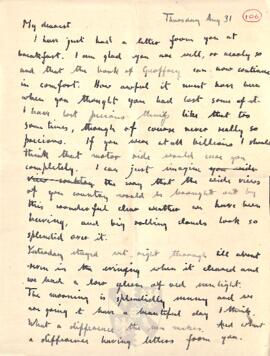 Thursday Aug 31
106
My dearest
I have just had a letter from you at
breakfast. I am glad you are well, or nearly so
and that the book of Geoffrey can now continue
in comfort. How awful it must have been
when you thought you had lost some of it.
I have lost precious things like that too
sometimes, though of course never really so
precious. If you were at all Williams I should
think that motor ride would cure you
completely. I can just imagine
the way the wide views
of your country would be brought out by
this wonderful clear weather we have been
having, and big rolling clouds look so
splendid over it.
Yesterday stayed wet right through till about
seven in the evening when it cleared and
we had a low gleam of red sunlight.
The morning is splendidly sunny and we
are going to have a beautiful day I think.
What a difference the sun makes. And what
a difference having letters from you.